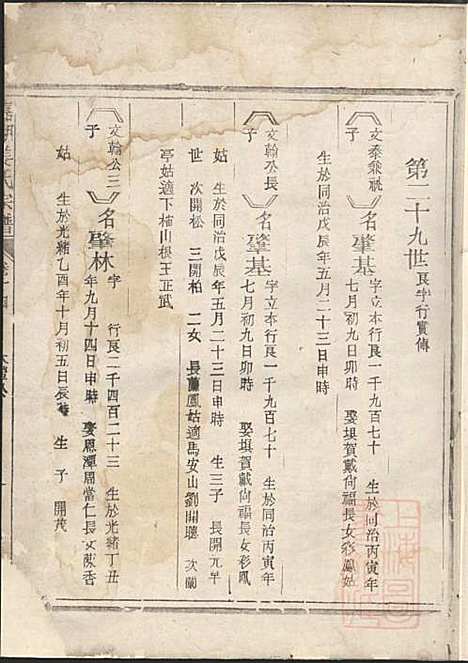 第二十九世良字行實傳
文泰承祧子 名肇基 字立本行良一千九百七十 生於同治丙寅年
七月初九日卯時 娶塤賀戴尙福長女彩鳳姑
生於同治戊辰年五月二十三日申時
文翰公長子 名肇基 字立本行良一千九百七十 生於同治丙寅年
七月初九日卯時 娶塤賀戴尙福長女彩鳳
姑 生於同治戊辰年五月二十三日申時 生三子 長開元早
世 次開松 三開柏 二女 長蘭鳳姑適馬安山劉開聰 次蘭
亭姑適下楠山根王正武
文翰公三子 名肇林 字 行良二千四百二十三 生於光緒丁丑
年九月十四日申時 娶恩潭周當仁長女陳香
姑 生於光緒乙酉年十月初五日辰時 生子 開茂